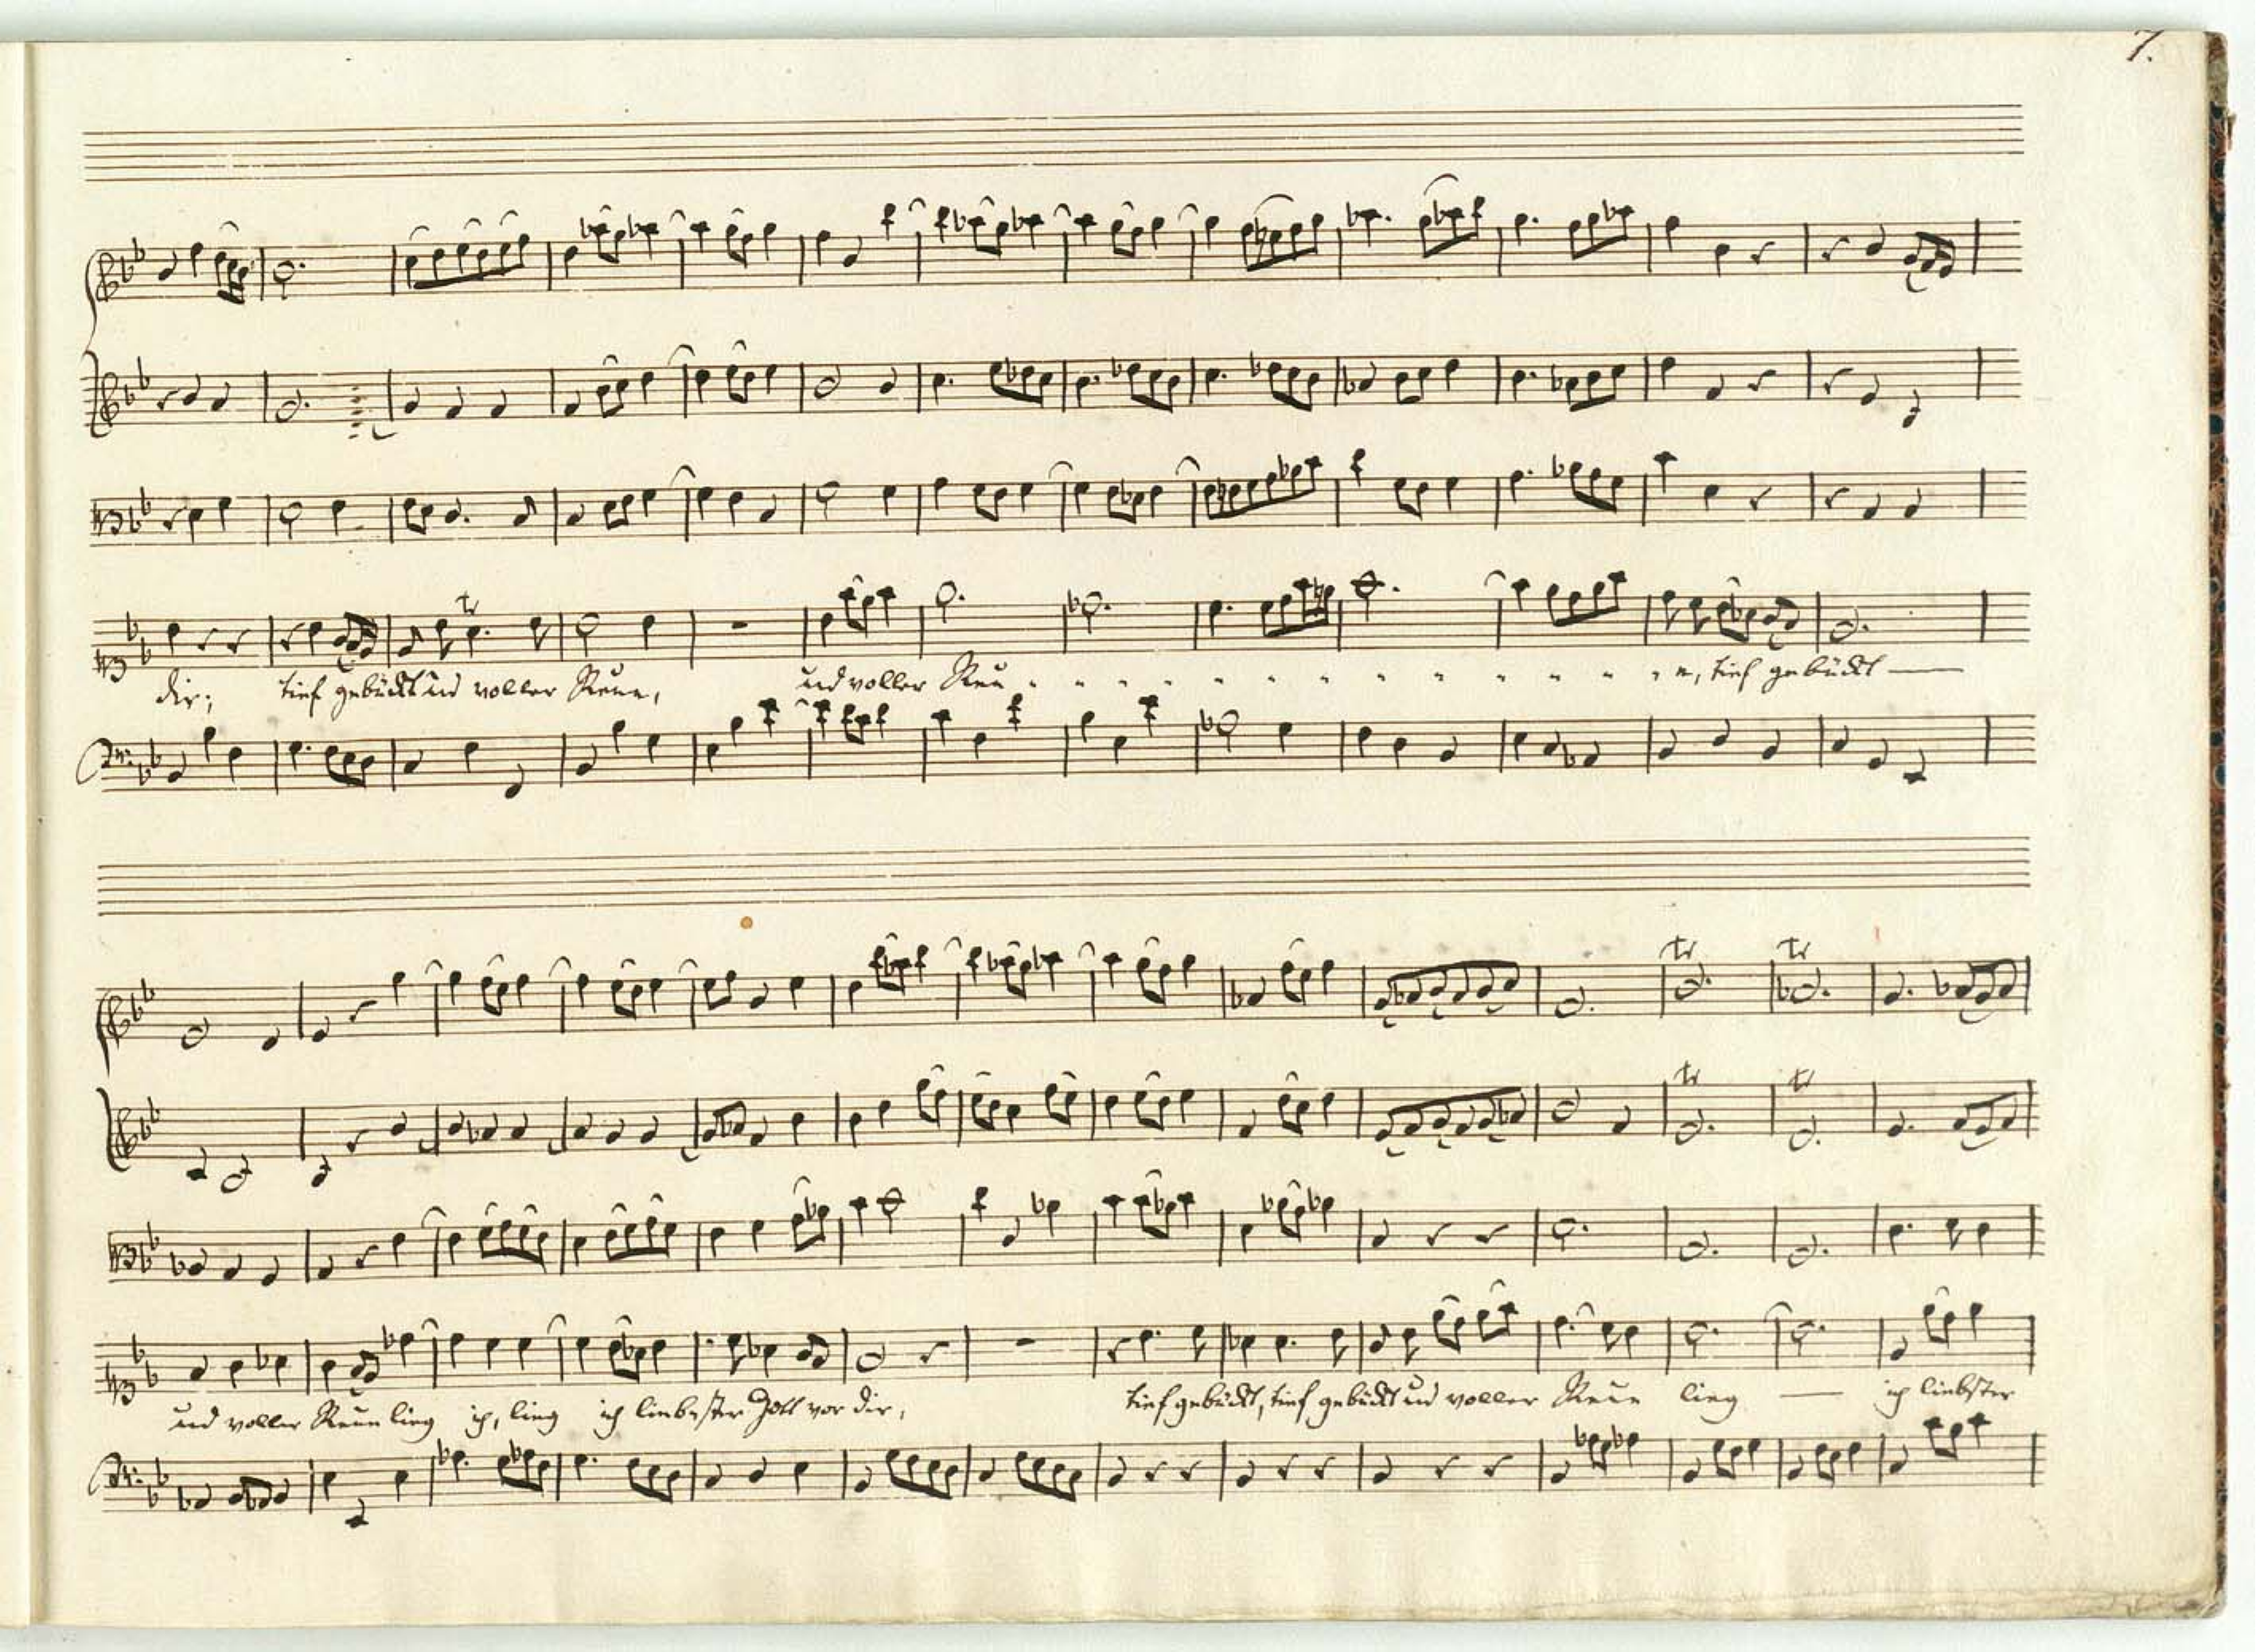 7.
dir; tief gebückt und voller Reue, und voller Reu - - - - - - - - - - - - e, tief gebückt —
und voller Reue lieg ich, lieg ich liebster Gott vor dir, tief gebückt, tief gebückt und voller Reue lieg — ich liebster